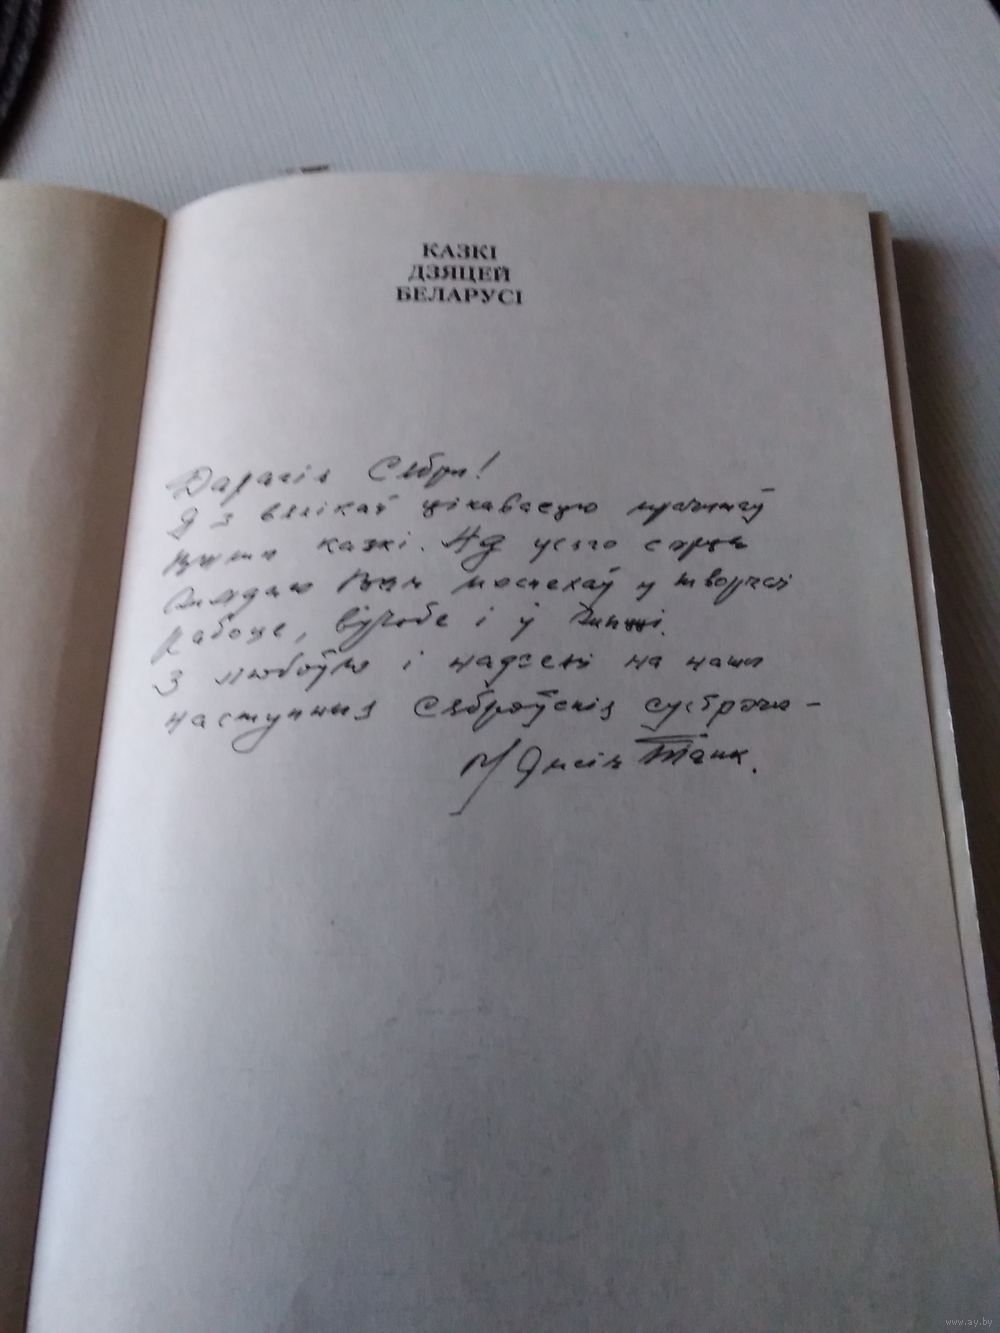 КАЗКІ
ДЗЯЦЕЙ
БЕЛАРУСІ
Дарагія Сябры!
Я з вялікаў цікавасцю прачытаў
Вашы казкі. Ад усяго сэрца
жадаю Вам поспехаў у творчай
рабоце, вучобе і ў жыцці.
З любоўю і надзеяй на нашы
наступныя сяброўскія сустрэчы –
Максім Танк.
www.ay.by